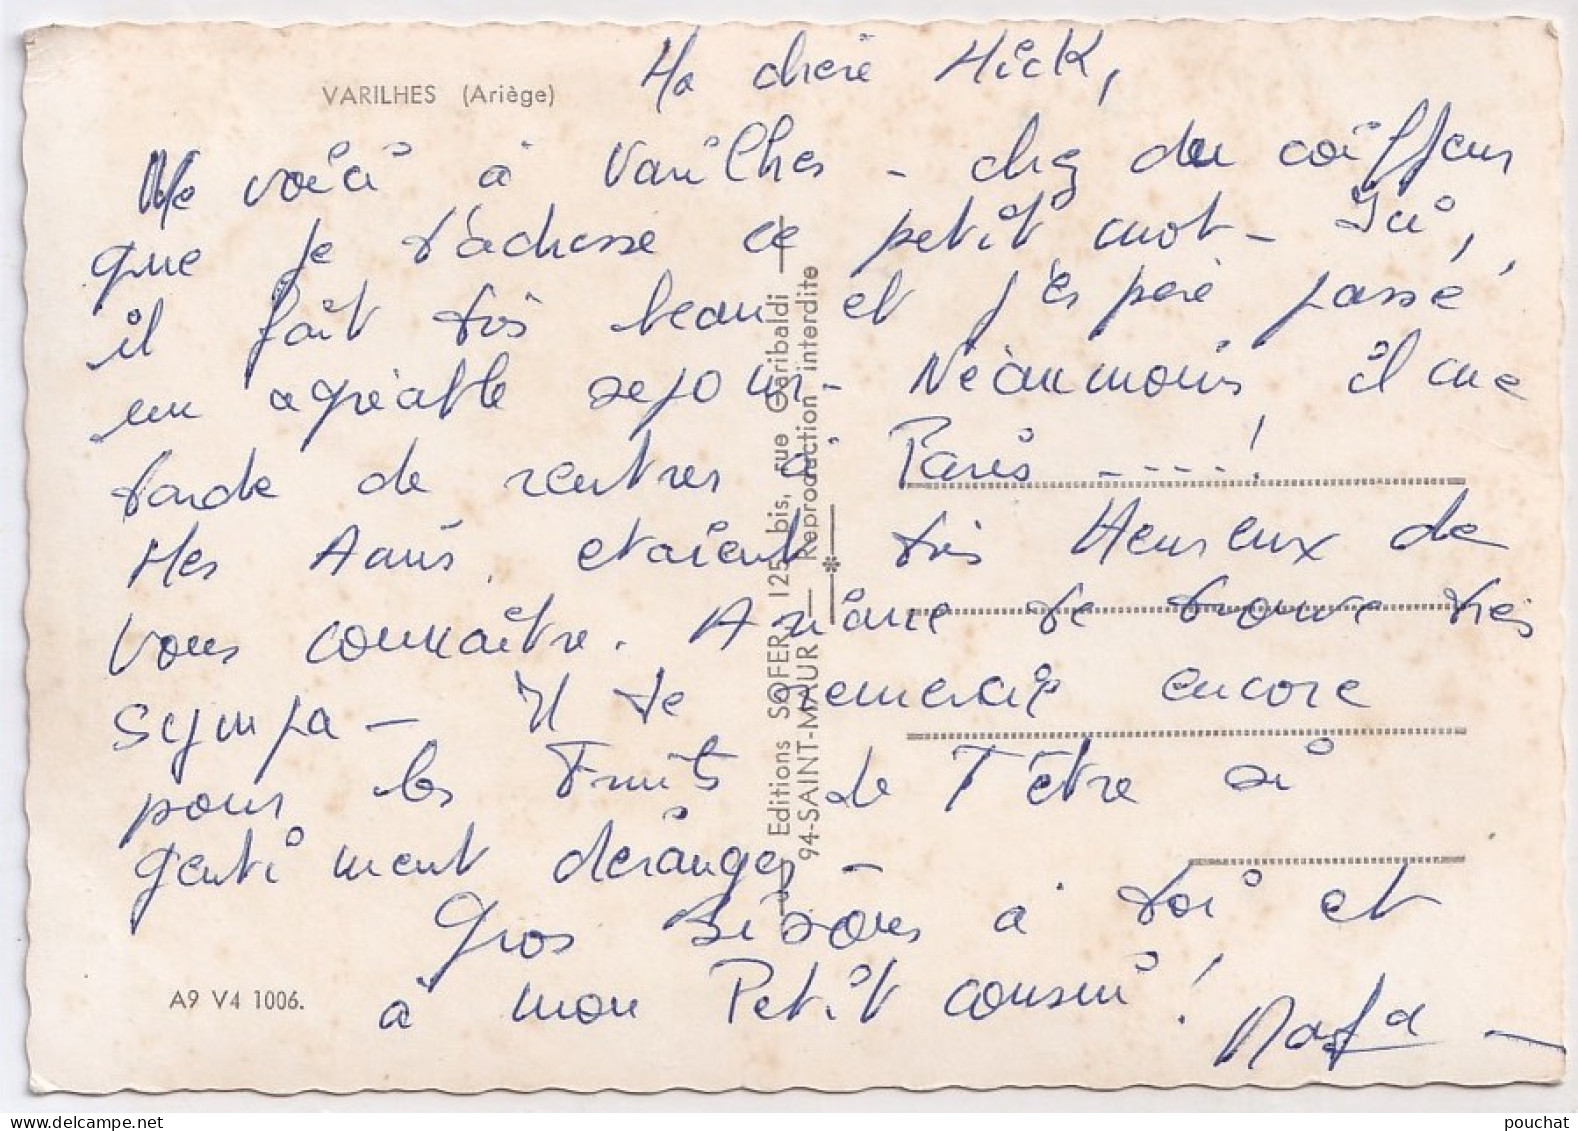 VARILHES (Ariège)
Ma chère Mick,
Me voici à Varilhes - chez du coiffeur
que je t'adresse ce petit mot - Ici,
il fait très beau et j'espère passé
un agréable sejour - Néanmoins il me
tarde de rentrer à Paris ----!
Mes Amis, etaient très Heureux de
vous connaître. Ariane te trouve très
sympa - Il te remercie encore
pour les Fruits de T'être si
gentiment déranger -
Gros Bisous à toi et
à mon Petit cousin !
A9 V4 1006.
Editions SOFER 125 bis, rue Garibaldi
94-SAINT-MAUR — Reproduction interdite
pouchat